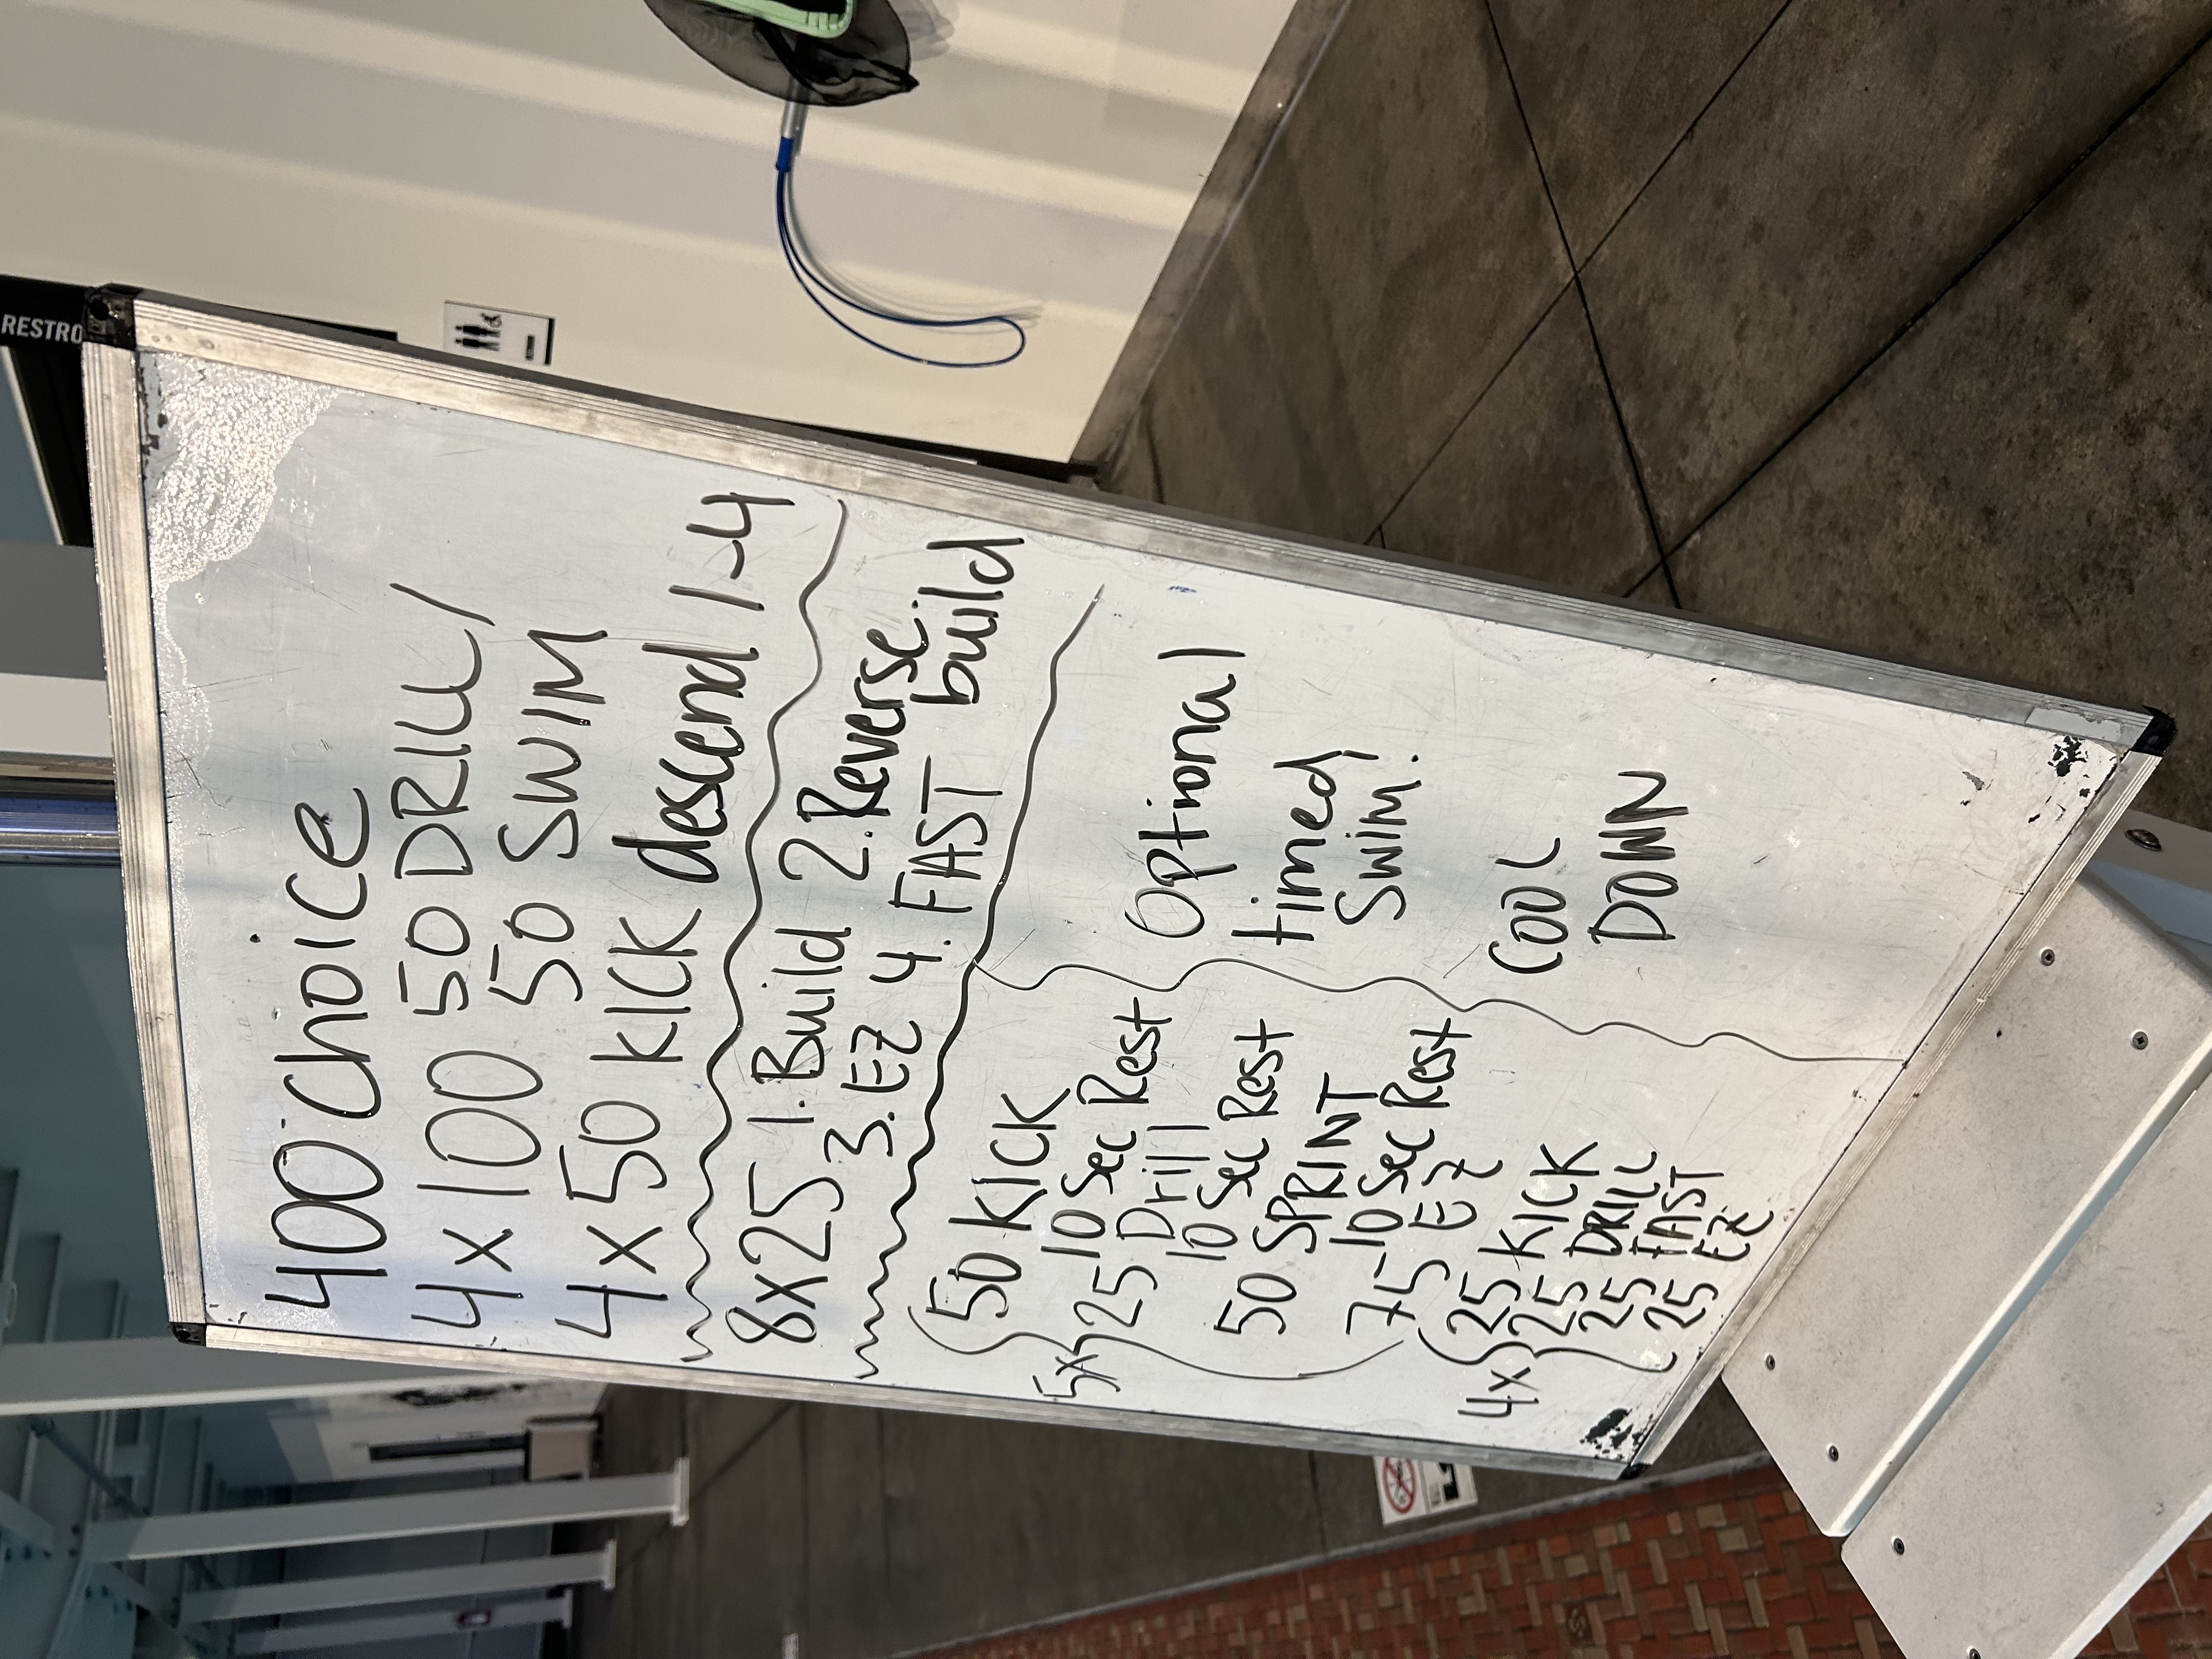 RESTRO
400 Choice
4x100 50 DRILL/
50 SWIM
4x50 KICK descend 1-4
8x25 1. Build 2. Reverse build
3. EZ 4. FAST
5x
50 KICK
10 Sec Rest
25 Drill
10 Sec Rest
50 SPRINT
10 Sec Rest
75 EZ
4x
25 KICK
25 DRILL
25 FAST
25 EZ
Optional
timed
Swim!
COOL
DOWN